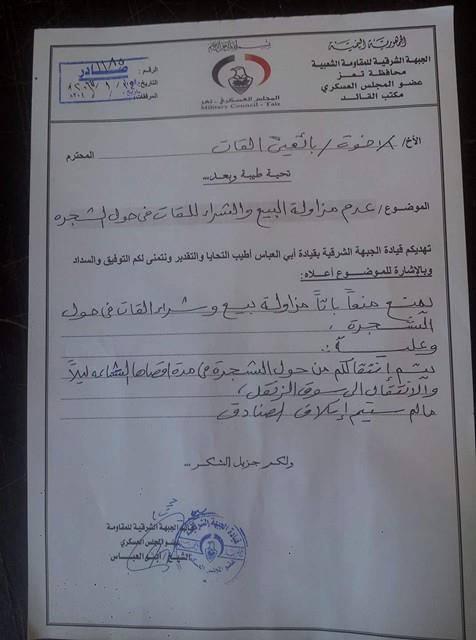 بسم الله الرحمن الرحيم
الجمهورية اليمنية
الجبهة الشرقية للمقاومة الشعبية
محافظة تعز
عضو المجلس العسكري
مكتب القائد
المجلس العسكري - تعز
Military Council - Taiz
صادر
الرقم:
التاريخ:
المرفقات:
الأخ/ الاخوة / بائعين القات المحترم
تحية طيبة وبعد...
الموضوع/ عدم مزاولة البيع والشراء للقات في حول الشجرة
تهديكم قيادة الجبهة الشرقية بقيادة أبي العباس أطيب التحايا والتقدير ونتمنى لكم التوفيق والسداد
وبالإشارة للموضوع أعلاه:
يمنع منعاً باتاً مزاولة بيع وشراء القات في حول
الشجرة.
وعليه:
يتم انتقالكم من حول الشجرة في مدة اقصاها الساعه ليلاً
والانتقال الى سوق الزنقل،
مالم سيتم إتلاف الصنادق
ولكم جزيل الشكر...
قائد الجبهة الشرقية للمقاومة
عضو المجلس العسكري
الشيخ / أبو العباس